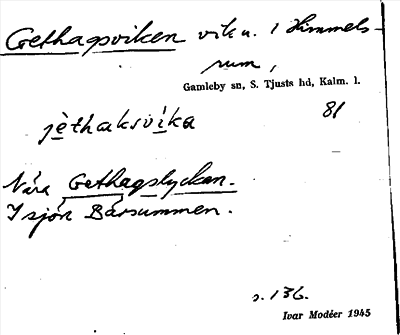 Gethagsviken vik u. i Himmels-
rum,
Gamleby sn, S. Tjusts hd, Kalm. l.
81
jèthaksvi̇ka
Nära Gethagslyckan.
I sjön Bårsummen.
s. 136.
Ivar Modéer 1945